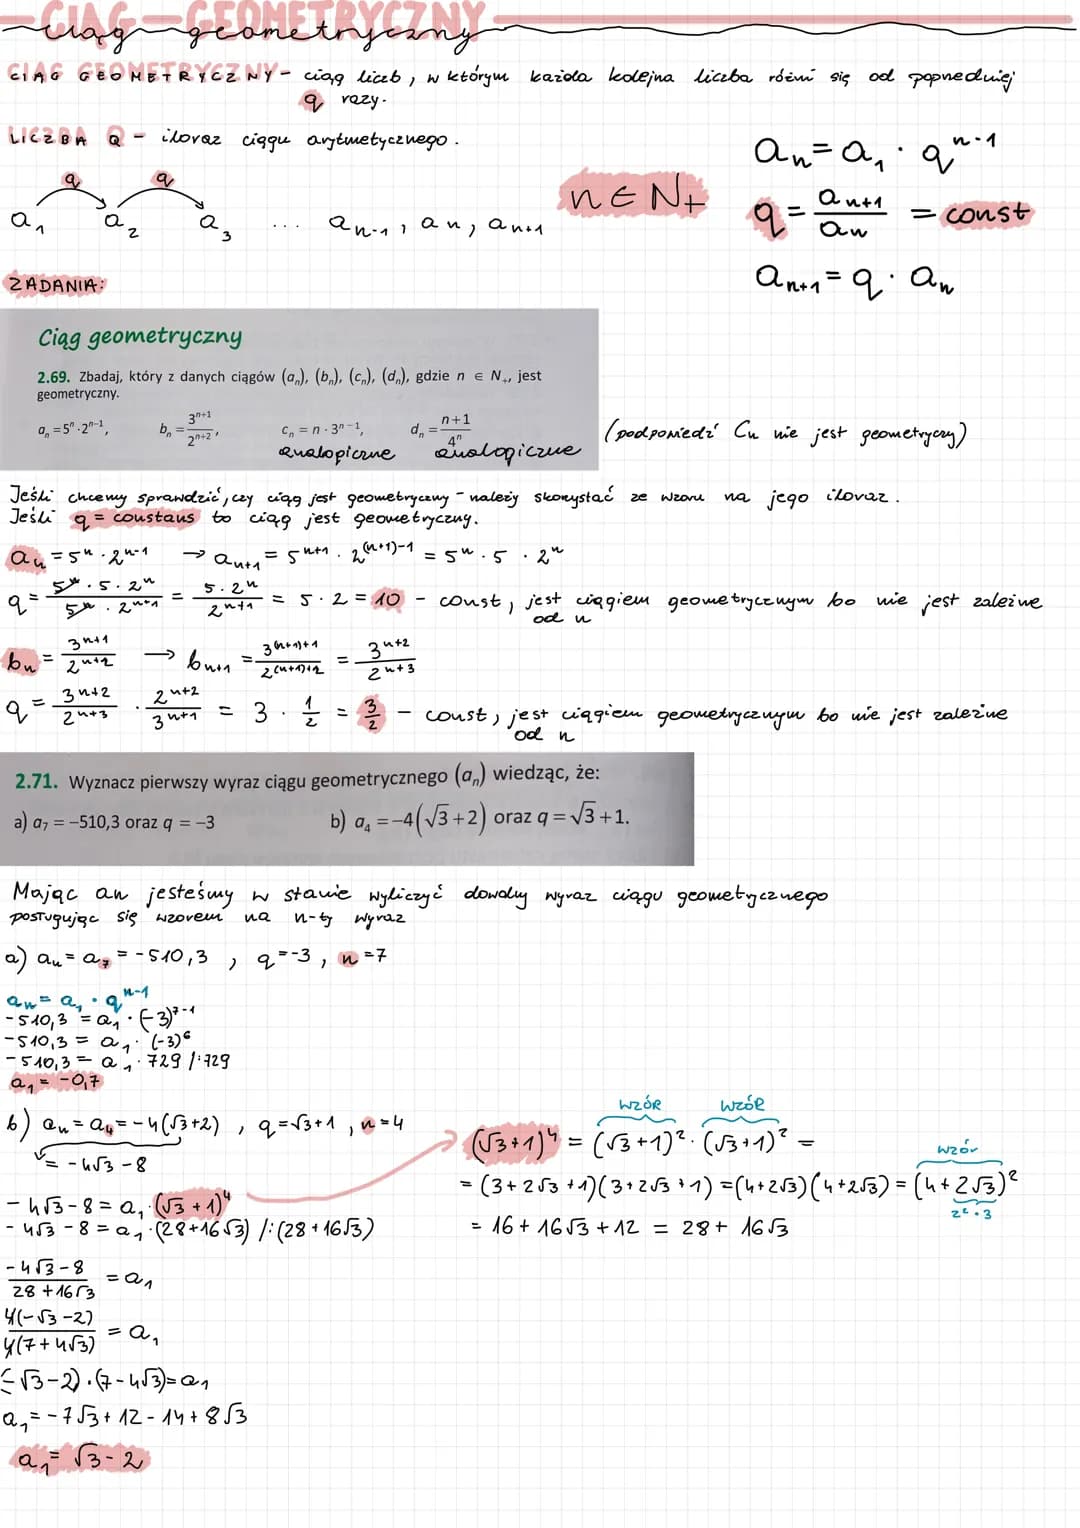 CIĄG GEOMETRYCZNY
Ciąg geometryczny
CIĄG GEOMETRYCZNY - ciąg liczb, w którym każda kolejna liczba różni się od poprzedniej
q razy.
LICZBA Q - iloraz ciągu arytmetycznego.
q q
a₁ a₂ a₃ ... aₙ₋₁, aₙ, aₙ₊₁
n ∈ N₊
aₙ = a₁ · qⁿ⁻¹
q = aₙ₊₁/aₙ = const
aₙ₊₁ = q · aₙ
ZADANIA:
Ciąg geometryczny
2.69. Zbadaj, który z danych ciągów (aₙ), (bₙ), (cₙ), (dₙ), gdzie n ∈ N₊, jest
geometryczny.
aₙ = 5ⁿ · 2ⁿ⁻¹, bₙ = 3ⁿ⁺¹/2ⁿ⁺², cₙ = n · 3ⁿ⁻¹, dₙ = (n+1)/4ⁿ
analogiczne analogiczne
(podpowiedź Cn nie jest geometryczny)
Jeśli chcemy sprawdzić, czy ciąg jest geometryczny - należy skorzystać ze wzoru na jego iloraz.
Jeśli q = constans to ciąg jest geometryczny.
aₙ = 5ⁿ · 2ⁿ⁻¹ → aₙ₊₁ = 5ⁿ⁺¹ · 2⁽ⁿ⁺¹⁾⁻¹ = 5ⁿ · 5 · 2ⁿ
q = (5ⁿ · 5 · 2ⁿ)/(5ⁿ · 2ⁿ⁺¹) = (5 · 2ⁿ)/2ⁿ⁺¹ = 5 · 2 = 10 - const, jest ciągiem geometrycznym bo nie jest zależne
od n
bₙ = 3ⁿ⁺¹/2ⁿ⁺² → bₙ₊₁ = 3⁽ⁿ⁺¹⁾⁺¹/2⁽ⁿ⁺¹⁾⁺² = 3ⁿ⁺²/2ⁿ⁺³
q = 3ⁿ⁺²/2ⁿ⁺³ · 2ⁿ⁺²/3ⁿ⁺¹ = 3 · 1/2 = 3/2 - const, jest ciągiem geometrycznym bo nie jest zależne
od n
2.71. Wyznacz pierwszy wyraz ciągu geometrycznego (aₙ) wiedząc, że:
a) a₇ = -510,3 oraz q = -3 b) a₄ = -4(√3+2) oraz q = √3+1.
Mając an jesteśmy w stanie wyliczyć dowolny wyraz ciągu geometrycznego
posługując się wzorem na n-ty wyraz
a) aₙ = a₇ = -510,3 , q = -3, n = 7
aₙ = a₁ · qⁿ⁻¹
-510,3 = a₁ · (-3)⁷⁻¹
-510,3 = a₁ · (-3)⁶
-510,3 = a₁ · 729 /:729
a₁ = -0,7
b) aₙ = a₄ = -4(√3+2) , q = √3+1, n = 4
= -4√3 - 8
-4√3 - 8 = a₁ · (√3+1)⁴
-4√3 - 8 = a₁ · (28+16√3) /:(28+16√3)
(-4√3-8)/(28+16√3) = a₁
4(-√3-2)/4(7+4√3) = a₁
(-√3-2)·(7-4√3) = a₁
a₁ = -7√3 + 12 - 14 + 8√3
a₁ = √3 - 2
WZÓR WZÓR
(√3+1)⁴ = (√3+1)² · (√3+1)² =
wzór
= (3+2√3+1)(3+2√3+1) = (4+2√3)(4+2√3) = (4+2√3)²
2² · 3
= 16 + 16√3 + 12 = 28 + 16√3